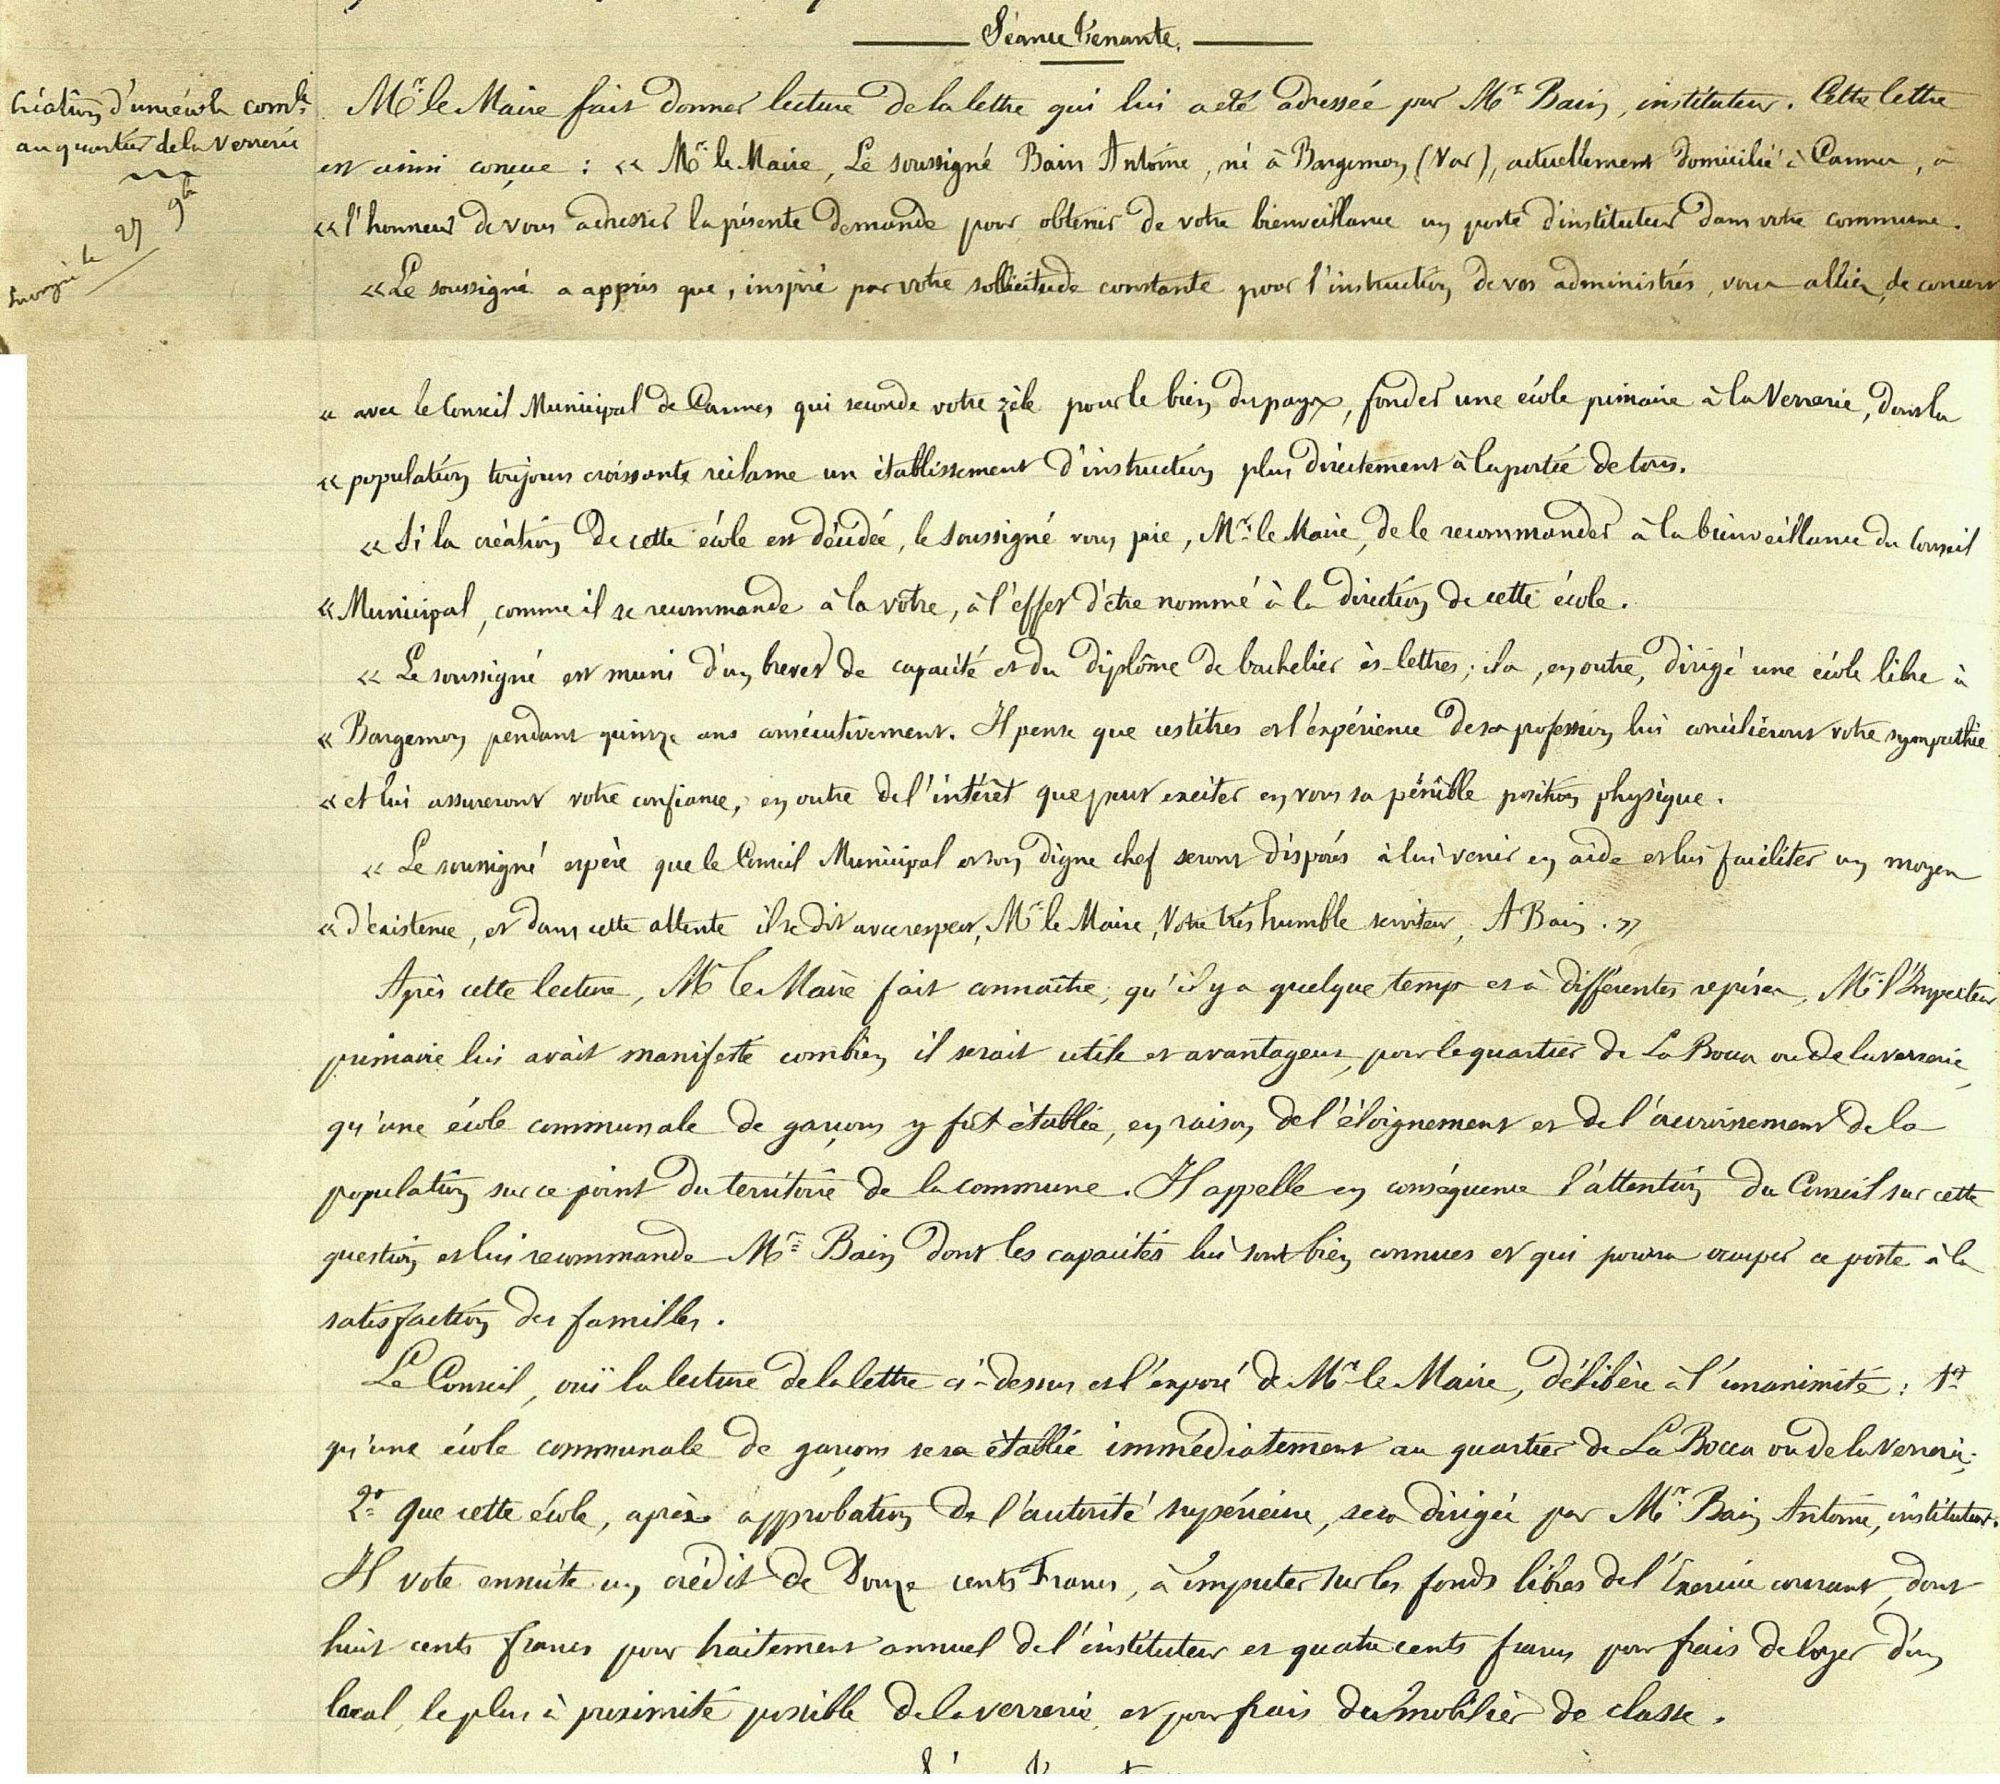 Séance Tenante.
Création d'une école comle
au quartier de la Verrerie
Envoyé le 27 9bre
Mr. le Maire fait donner lecture de la lettre qui lui a été adressée par Mr. Bain, instituteur. Cette lettre
est ainsi conçue : « Mr. le Maire, Le soussigné Bain Antoine, né à Bargemon (Var), actuellement domicilié à Cannes, a
« l'honneur de vous adresser la présente demande pour obtenir de votre bienveillance un poste d'instituteur dans votre commune.
« Le soussigné a appris que, inspiré par votre sollicitude constante pour l'instruction de vos administrés, vous alliez, de concert
« avec le Conseil Municipal de Cannes qui seconde votre zèle pour le bien du pays, fonder une école primaire à la Verrerie, dont la
« population toujours croissante réclame un établissement d'instruction plus directement à la portée de tous.
« Si la création de cette école est décidée, le soussigné vous prie, Mr. le Maire, de le recommander à la bienveillance du Conseil
« Municipal, comme il se recommande à la vôtre, à l'effet d'être nommé à la direction de cette école.
« Le soussigné est muni d'un brevet de capacité et du diplôme de bachelier ès-lettres ; il a, en outre, dirigé une école libre à
« Bargemon pendant quinze ans consécutivement. Il pense que ces titres et l'expérience de sa profession lui concilieront votre sympathie
« et lui assureront votre confiance, en outre de l'intérêt que peut exciter en vous sa pénible position physique.
« Le soussigné espère que le Conseil Municipal et son digne chef seront disposés à lui venir en aide et lui faciliter un moyen
« d'existence, et dans cette attente il se dit avec respect, Mr. le Maire, Votre très humble serviteur, A Bain. »
Après cette lecture, Mr le Maire fait connaître, qu'il y a quelque temps et à différentes reprises, Mr. l'Inspecteur
primaire lui avait manifesté combien il serait utile et avantageux, pour le quartier de La Bocca ou de la verrerie,
qu'une école communale de garçons y fut établie, en raison de l'éloignement et de l'accroissement de la
population sur ce point du territoire de la commune. Il appelle en conséquence l'attention du Conseil sur cette
question et lui recommande Mr. Bain dont les capacités lui sont bien connues et qui pourra occuper ce poste à la
satisfaction des familles.
Le Conseil, ouï la lecture de la lettre ci-dessus et l'exposé de Mr. le Maire, délibère à l'unanimité : 1o
qu'une école communale de garçons sera établie immédiatement au quartier de La Bocca ou de la Verrerie ;
2o que cette école, après approbation de l'autorité supérieure, sera dirigée par Mr. Bain Antoine, instituteur.
Il vote ensuite un crédit de Douze cents Francs, à imputer sur les fonds libres de l'Exercice courant, dont
huit cents francs pour traitement annuel de l'instituteur et quatre cents francs pour frais de loyer d'un
local, le plus à proximité possible de la verrerie, et pour frais du mobilier de classe.